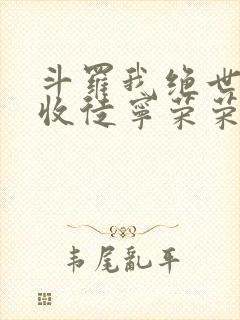 斗罗我绝世
收徒宁荣荣
韦尾乱平